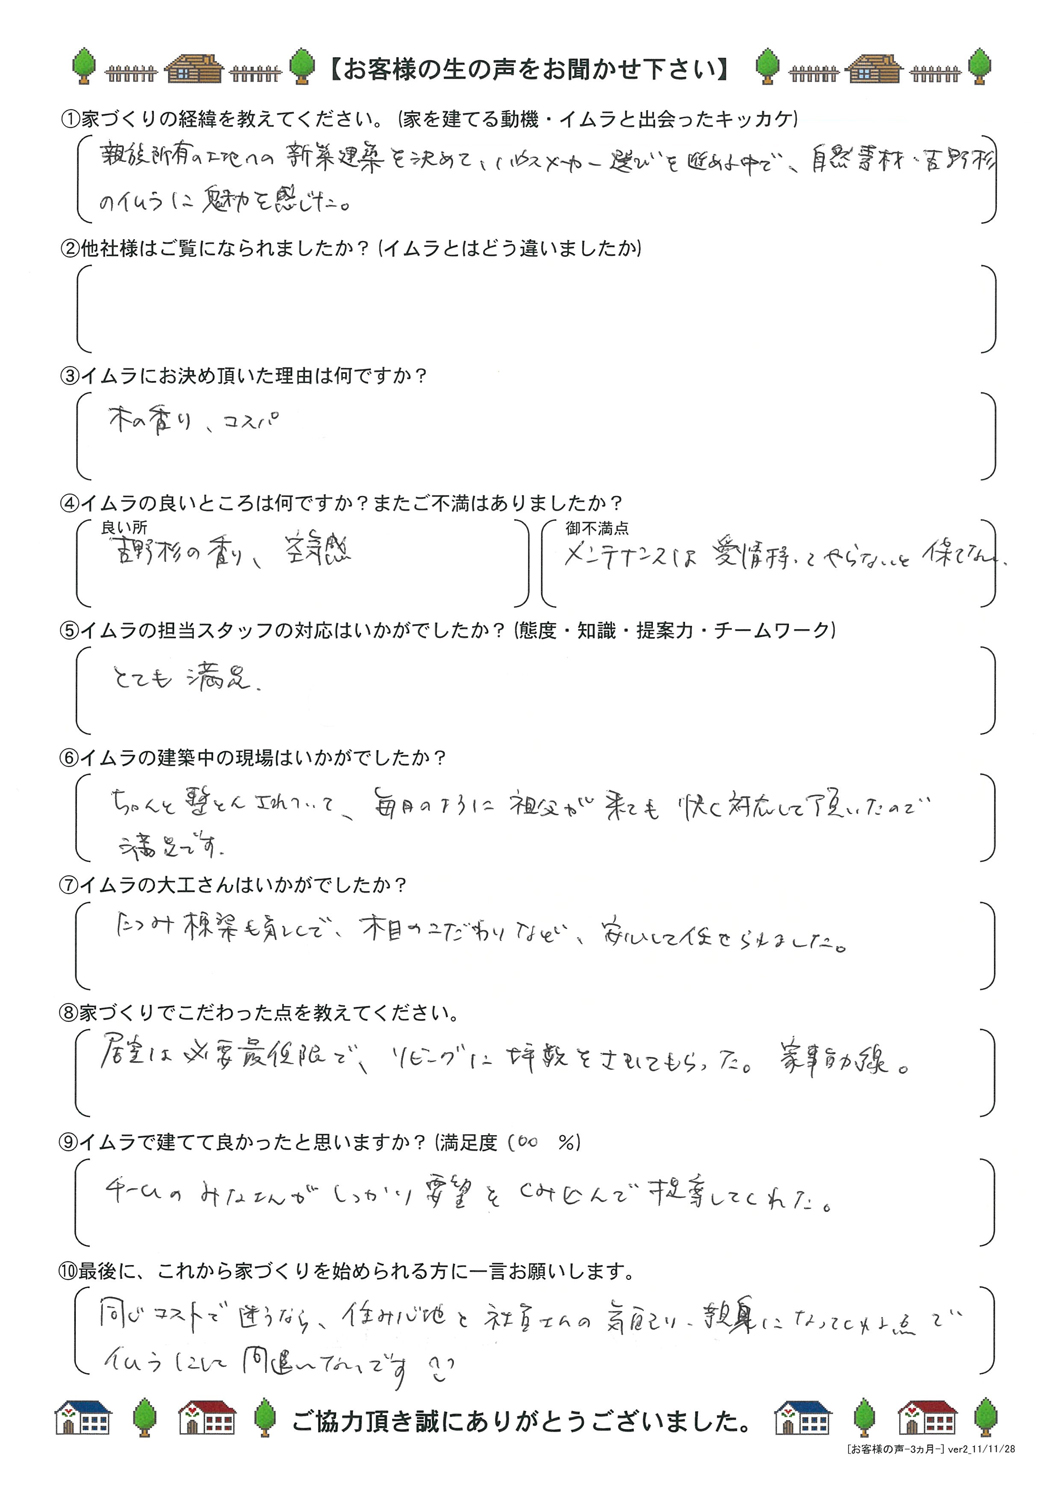 【お客様の生の声をお聞かせ下さい】
①家づくりの経緯を教えてください。(家を建てる動機・イムラと出会ったキッカケ)
親族所有の土地への新築建築を決めて、ハウスメーカー選びを進める中で、自然素材・吉野杉
のイムラに魅力を感じた。
②他社様はご覧になられましたか？(イムラとはどう違いましたか)
③イムラにお決め頂いた理由は何ですか？
木の香り、コスパ
④イムラの良いところは何ですか？またご不満はありましたか？
良い所
吉野杉の香り、空気感
御不満点
メンテナンスは愛情持ってやらないと保てない.
⑤イムラの担当スタッフの対応はいかがでしたか？(態度・知識・提案力・チームワーク)
とても満足.
⑥イムラの建築中の現場はいかがでしたか？
ちゃんと整とんされていて、毎日のように祖父が来ても快く対応して頂いたので
満足です.
⑦イムラの大工さんはいかがでしたか？
たつみ棟梁も気さくで、木目のこだわりなど、安心して任せられました。
⑧家づくりでこだわった点を教えてください。
居室は必要最低限で、リビングに坪数をさいてもらった。家事動線。
⑨イムラで建てて良かったと思いますか？(満足度 100 %)
チームのみなさんがしっかり要望をくみこんで提案してくれた。
⑩最後に、これから家づくりを始められる方に一言お願いします。
同じコストで迷うなら、住み心地と社員さんの気配り、親身になってくれる点で
イムラにして間違いないです
ご協力頂き誠にありがとうございました。
[お客様の声-3ヵ月-] ver2_11/11/28